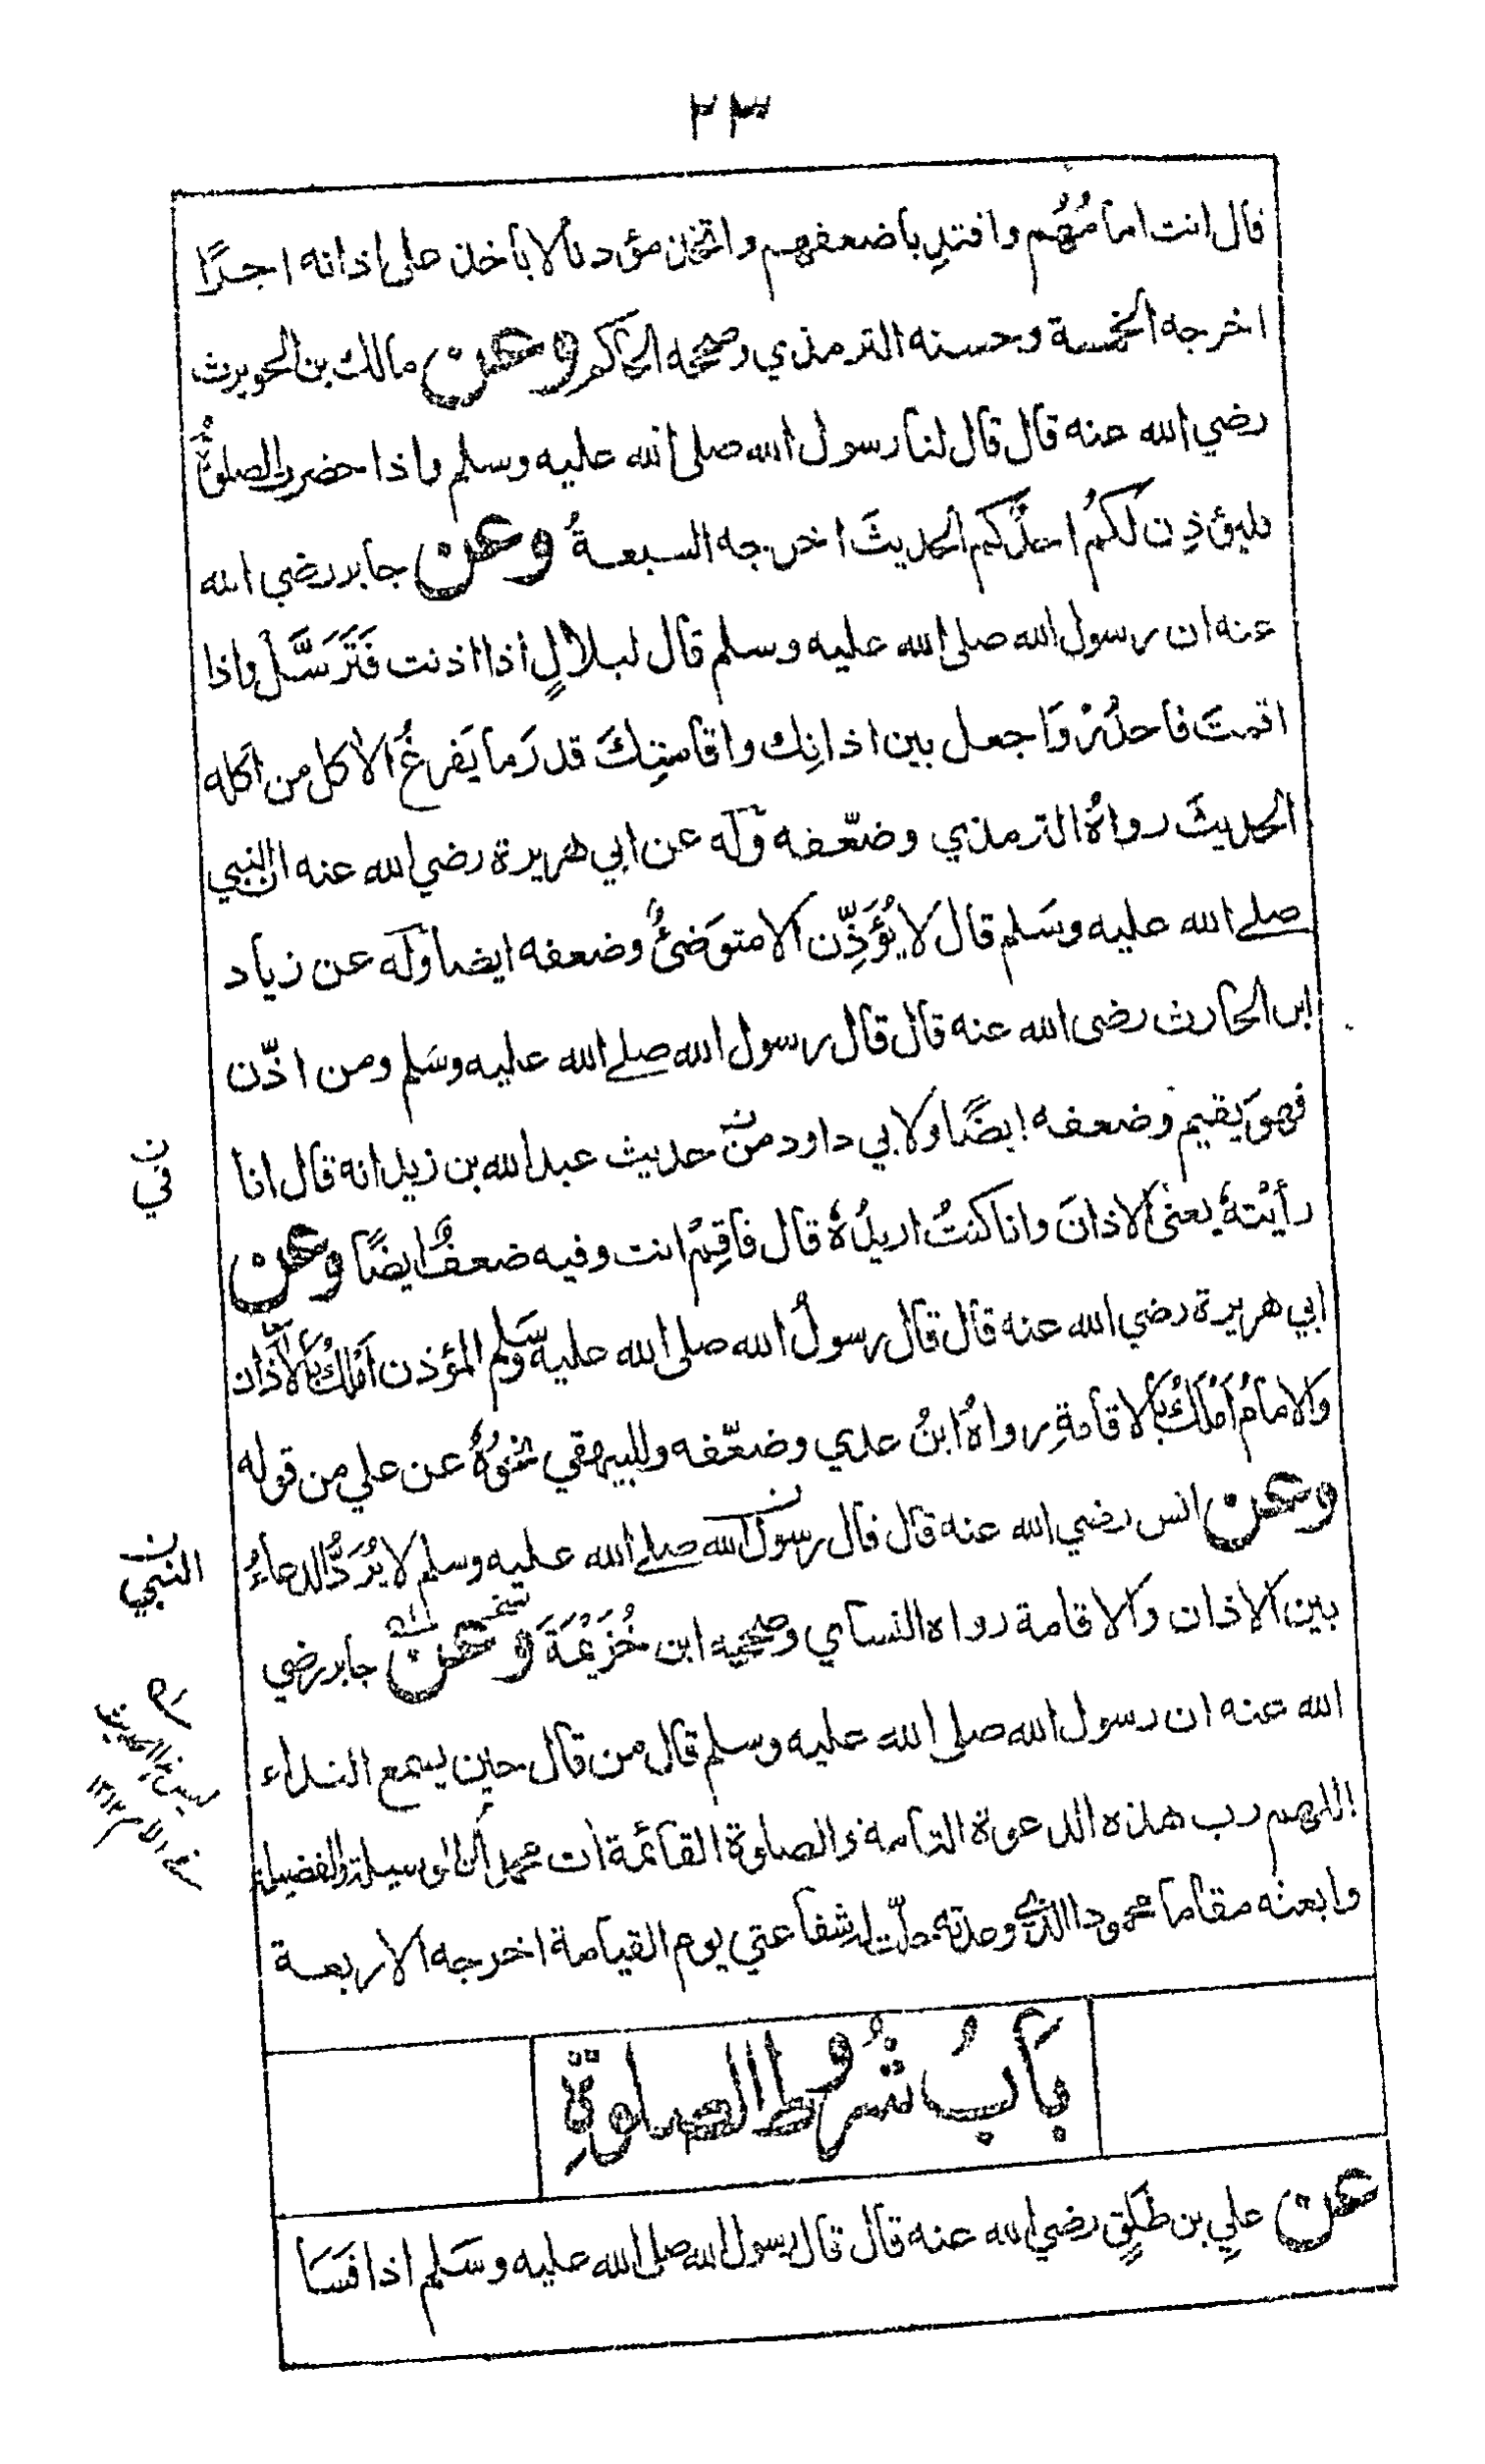 ٢٣
قال انت امامُهُم واقتدِ باضعفهم واتخذ مؤذنا لا يأخذ على اذانه اجرًا
اخرجه الخمسة وحسنه الترمذي وصححه الحاكم وعن مالك بن الحويرث
رضي الله عنه قال قال لنا رسول الله صلى الله عليه وسلم واذا حضرت الصلوةُ
فليؤذِن لكمُ احدُكم الحديثَ اخرجه السبعةُ وعن جابر رضي الله
عنه ان رسول الله صلى الله عليه وسلم قال لبلالٍ اذا اذنت فَتَرَسَّلْ واذا
اقمتَ فاحدُرْ وَاجعل بين اذانِك واقامتِكَ قدرَ ما يَفرغُ الاٰكل من اكله
الحديثَ رواهُ الترمذي وضعّفه وله عن ابي هريرة رضي الله عنه ان النبي
صلے الله عليه وسَلم قال لا يُؤَذِّن الا متوَضئٌ وضعفه ايضا وله عن زياد
ابن الحارث رضى الله عنه قال قال رسول الله صلے الله عليه وسَلم ومن اذّن
فهوَ يقيم وضعفه ايضًا ولابي داود من حديث عبد الله بن زيد انه قال انا
ن
في
رأيْتهٗ يعنى الاذانَ وانا كنتُ اريدُهٗ قال فاقِمْ انت وفيه ضعفٌ ايضًا وعن
ابي هريرة رضي الله عنه قال قال رسولُ الله صلى الله عليه وسَلم المؤذن اَمْلَكُ بالاَذان
والامامُ اَمْلَكُ بالاقامةِ رواهُ ابنُ عدي وضعّفه وللبيهقي نحوُهٗ عن علي من قوله
وعن انس رضي الله عنه قال قال رسول الله صلے الله عليه وسلم لا يُرَدُّ الدعاءُ
ن
النبي
بين الاذان والاقامة رواه النساي وصححه ابن خُزَيْمَةَ وعن جابر رضي
الله عنه ان رسول الله صلى الله عليه وسلم قال من قال حين يسمع النداء
اللهم رب هذه الدعوة التامة والصلوة القائمة ات محمدا ن الوسيلة والفضيلة
وابعثه مقاما محمودا الذي وعدته حلّت له شفاعتي يوم القيامة اخرجه الاربعة
بَابُ شُرُوط الصلوةِ
عن علي بن طَلقٍ رضي الله عنه قال قال رسول الله صلى الله عليه وسَلم اذا فَسَا